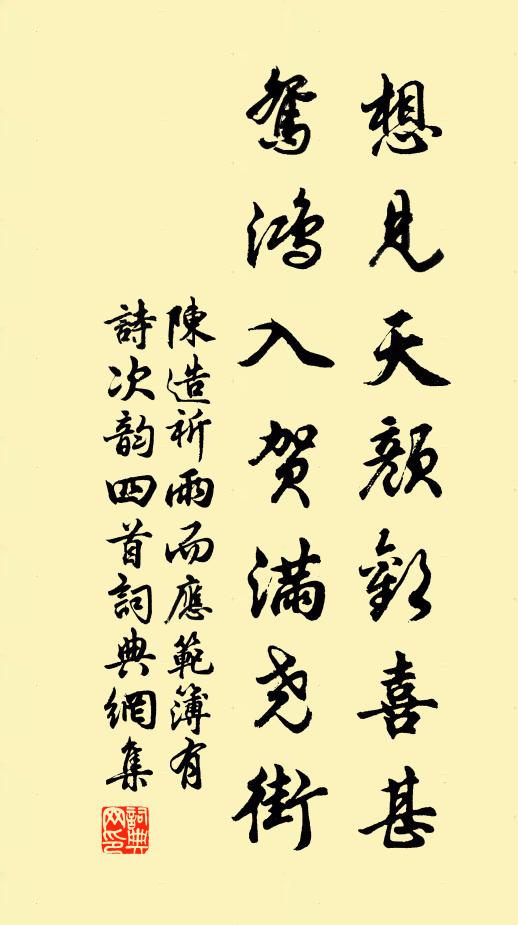 想見天顏歡喜甚
鴛鴻入賀滿堯街
陳造祈雨而應範簿有
詩次韵四首詞典網集
詞典
网印